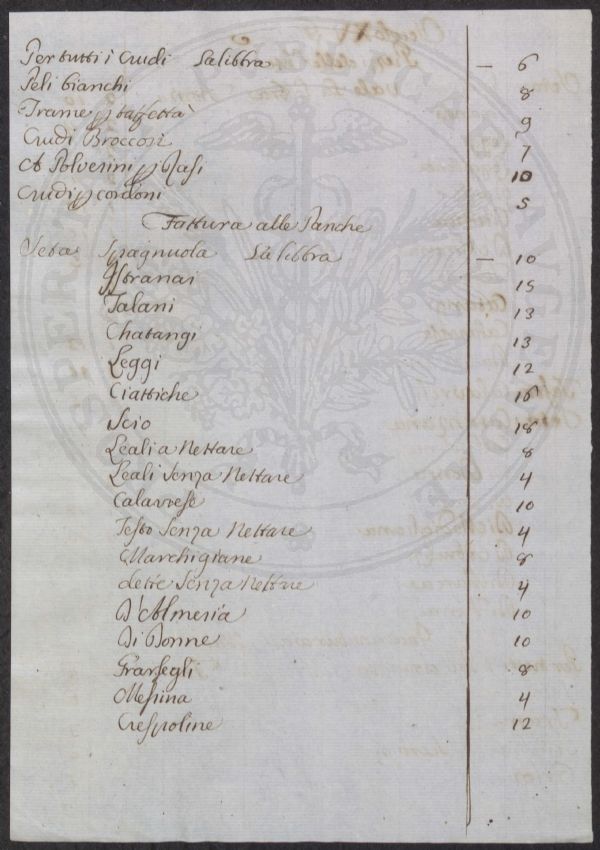 Per tutti i Crudi La libbra — 6
Peli bianchi 8
Trame p taffettà 9
Crudi Broccosi 7
A Polverini p Rasi 10
Crudi p cordoni 5
Fattura alle Panche
Seta Spagnuola La libbra — 10
Istranai 15
Talani 13
Chatangi 13
Leggi 12
Ciattiche 16
Scio 18
Leali a Nettare 8
Leali senza Nettare 4
Calavrese 10
Testo Senza Nettare 4
Marchigiane 8
dette Senza Nettare 4
D'Almeria 10
Di Donne 10
8
Messina 4
Crespoline 12